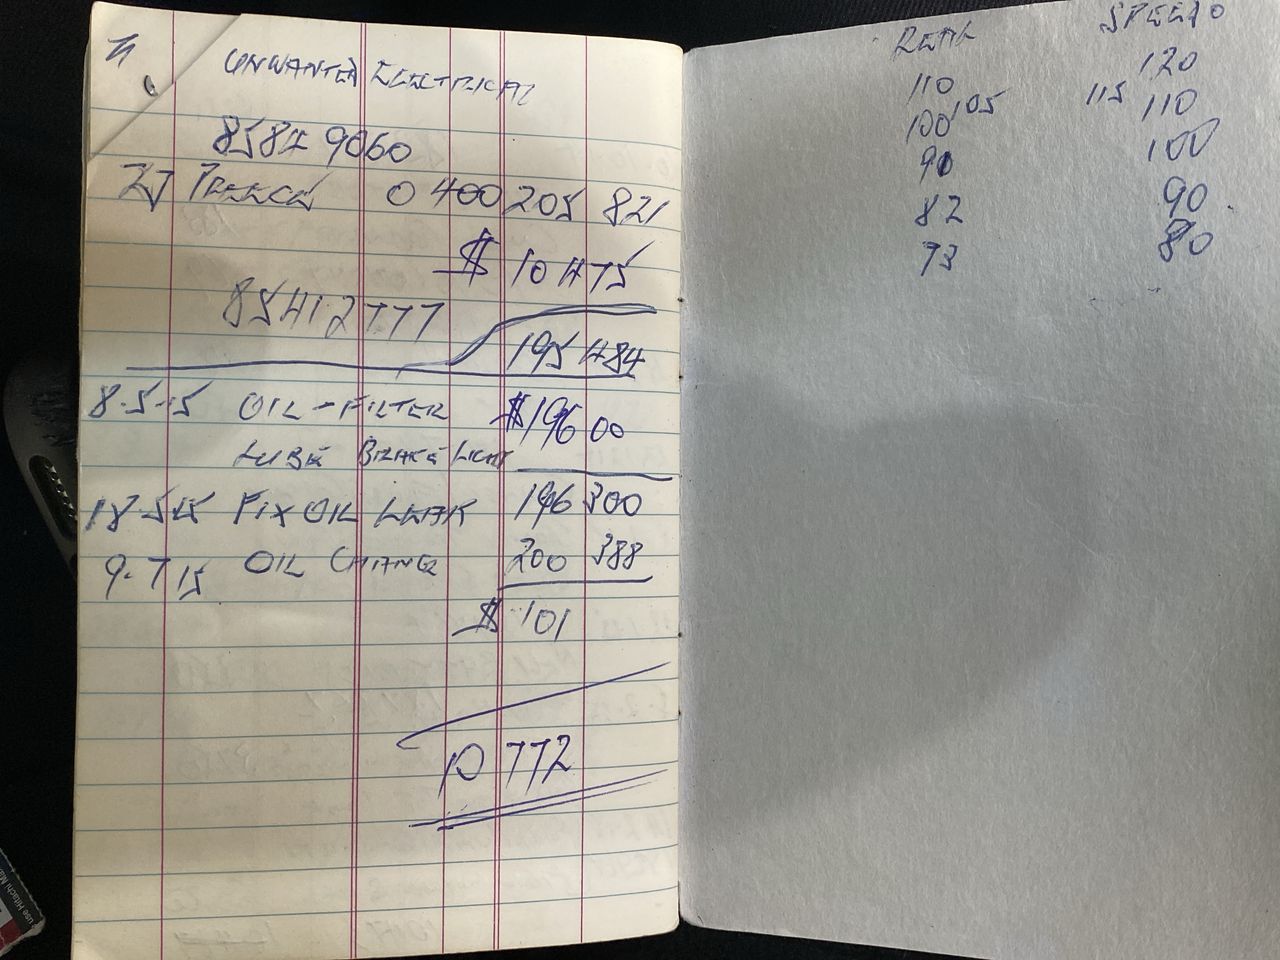 UNWANTED ELECTRICAL
8587 9060
0 400 205 821
$ 10 475
8541 2777
195 484
8.5.15 OIL - FILTER $196 00
LUBE BRAKE LIGHT
18.5.15 FIX OIL LEAK 196 300
9.7.15 OIL CHANGE 200 388
$ 101
10 772
REAL SPEEDO
110 120
105 115
100 110
90 100
82 90
73 80
use Hitachi Ma